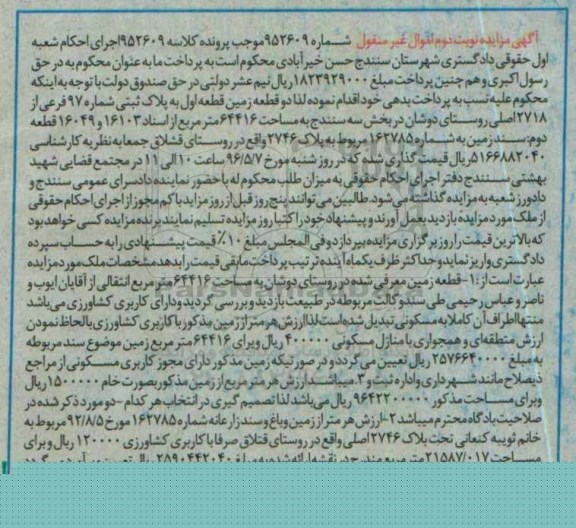 آگهی مزایده نوبت دوم اموال غیر منقول شماره ۹۵۲۶۰۹موجب پرونده کلاسه ۹۵۲۶۰۹اجرای احکام شعبه
اول حقوقی دادگستری شهرستان سنندج حسن خیرآبادی محکوم است به پرداخت ما به عنوان محکوم به در حق
رسول اکبری و هم چنین پرداخت مبلغ ۱۸۲۳۹۲۹۰۰۰ریال نیم عشر دولتی در حق صندوق دولت با توجه به اینکه
محکوم علیه نسب به پرداخت بدهی خود اقدام نموده لذا دو قطعه زمین قطعه اول به پلاک ثبتی شماره ۹۷ فرعی از
۲۷۱۸اصلی روستای دوشان در بخش سه سنندج به مساحت ۶۴۴۱۶متر مربع از اسناد ۱۶۱۰۳ و ۱۶۰۴۹ قطعه
دوم: سند زمین به شماره ۱۶۲۷۸۵ مربوط به پلاک ۲۷۴۶واقع در روستای قشلاق جمعا به نظریه کارشناسی
۵۱۶۶۸۸۲۰۴۰ریال قیمت گذاری شده که در روز شنبه مورخ ۹۶/۵/۷ ساعت ۱۰ الی ۱۱ در مجتمع قضایی شهید
بهشتی سنندج دفتر اجرای احکام حقوقی به میزان طلب محکوم له با حضور نماینده دادسرای عمومی سنندج و
دادورز شعبه به مزایده گذاشته می شود. طالبین می توانند پنج روز قبل از روز مزایده با کم مجوز از اجرای احکام حقوقی
از ملک مورد مزایده بازدید بعمل آورند و پیشنهاد خود را کتبا روز مزایده تسلیم نمایند برنده مزایده کسی خواهد بود
که بالاترین قیمت را روز برگزاری مزایده بپردازد و فی المجلس مبلغ ۱۰٪ قیمت پیشنهادی را به حساب سپرده
دادگستری واریز نماید و حداکثر ظرف یکماه آینده ترتیب پرداخت مابقی قیمت را بدهد مشخصات ملک مورد مزایده
عبارت است از: ۱-قطعه زمین معرفی شده در روستای دوشان به مساحت ۶۴۴۱۶متر مربع انتقالی از آقایان ایوب و
ناصر و عباس رحیمی طی سند وکالت مربوطه در طبیعت بازدید و بررسی گردید و دارای کاربری کشاورزی می باشد
منتها اطراف آن کاملا به مسکونی تبدیل شده است لذا ارزش هر متر از زمین مذکور با کاربری کشاورزی بالحاظ نمودن
ارزش منطقه ای و همجواری با منازل مسکونی ۴۰۰۰۰۰ ریال و برای ۶۴۴۱۶ متر مربع زمین موضوع سند مربوطه
به مبلغ ۲۵۷۶۶۴۰۰۰۰ ریال تعیین می گردد و در صورتیکه زمین مذکور دارای مجوز کاربری مسکونی از مراجع
ذیصلاح مانند شهرداری و اداره ثبت و ۳. میباشد ارزش هر متر مربع از زمین مذکور بصورت خام ۱۵۰۰۰۰۰ ریال
و برای مساحت مذکور ۹۶۴۲۲۰۰۰۰۰ ریال می باشد لذا تصمیم گیری در انتخاب هر کدام -دو مورد ذکر شده در
صلاحیت دادگاه محترم میباشد ۲-ارزش هر متر از زمین و باغ و سند زارعانه شماره ۱۶۲۷۸۵ مورخ ۹۲/۸/۵ مربوط به
خانم ثوبیه کنعانی تحت پلاک ۲۷۴۶اصلی واقع در روستای قتلاق صرفا با کاربری کشاورزی ۱۲۰۰۰۰ ریال و برای
مساحت ۲۱۵۸۷/۰۱۷متر مربع مندرج در نقشه ارائه شده به مبلغ ۲۵۹۰۴۴۲۰۴۰ ریال